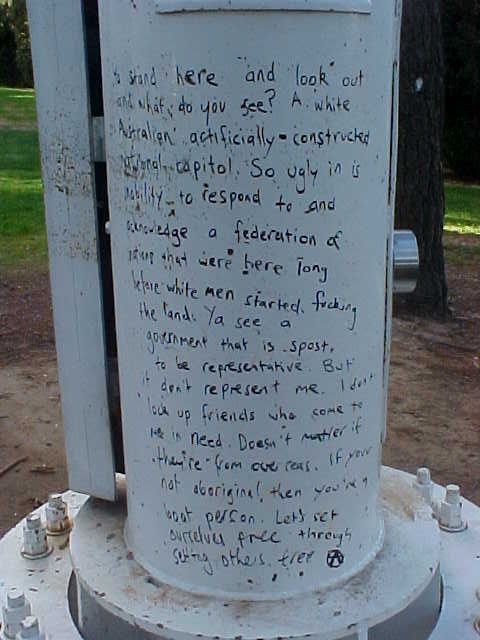 stand here and look out
and what do you see? A white
Australian artificially-constructed
national capitol. So ugly in is
inability to respond to and
acknowledge a federation of
nations that were here long
before white men started fucking
the land. Ya see a
government that is spost,
to be representative. But
it don't represent me. I don't
lock up friends who come to
me in need. Doesn't matter if
they're from over eas. If your
not aboriginal, then you're a
boat person. Let's set
ourselves free through
setting others free